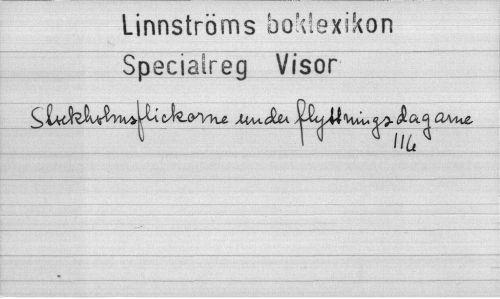 Linnströms boklexikon
Specialreg Visor
Stockholmsflickorne under flyttningsdagarne
116